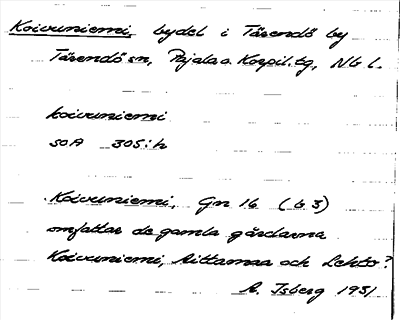 Koivuniemi, bydel i Tärendö by
Tärendö sn, Pajala o. Korpil. tg, Nb l.
koivuniemi
SOA 305:h
Koivuniemi, Gn 16 (b 3)
omfattar de gamla gårdarna
Koivuniemi, Aittamaa och Lehto?
A. Isberg 1931